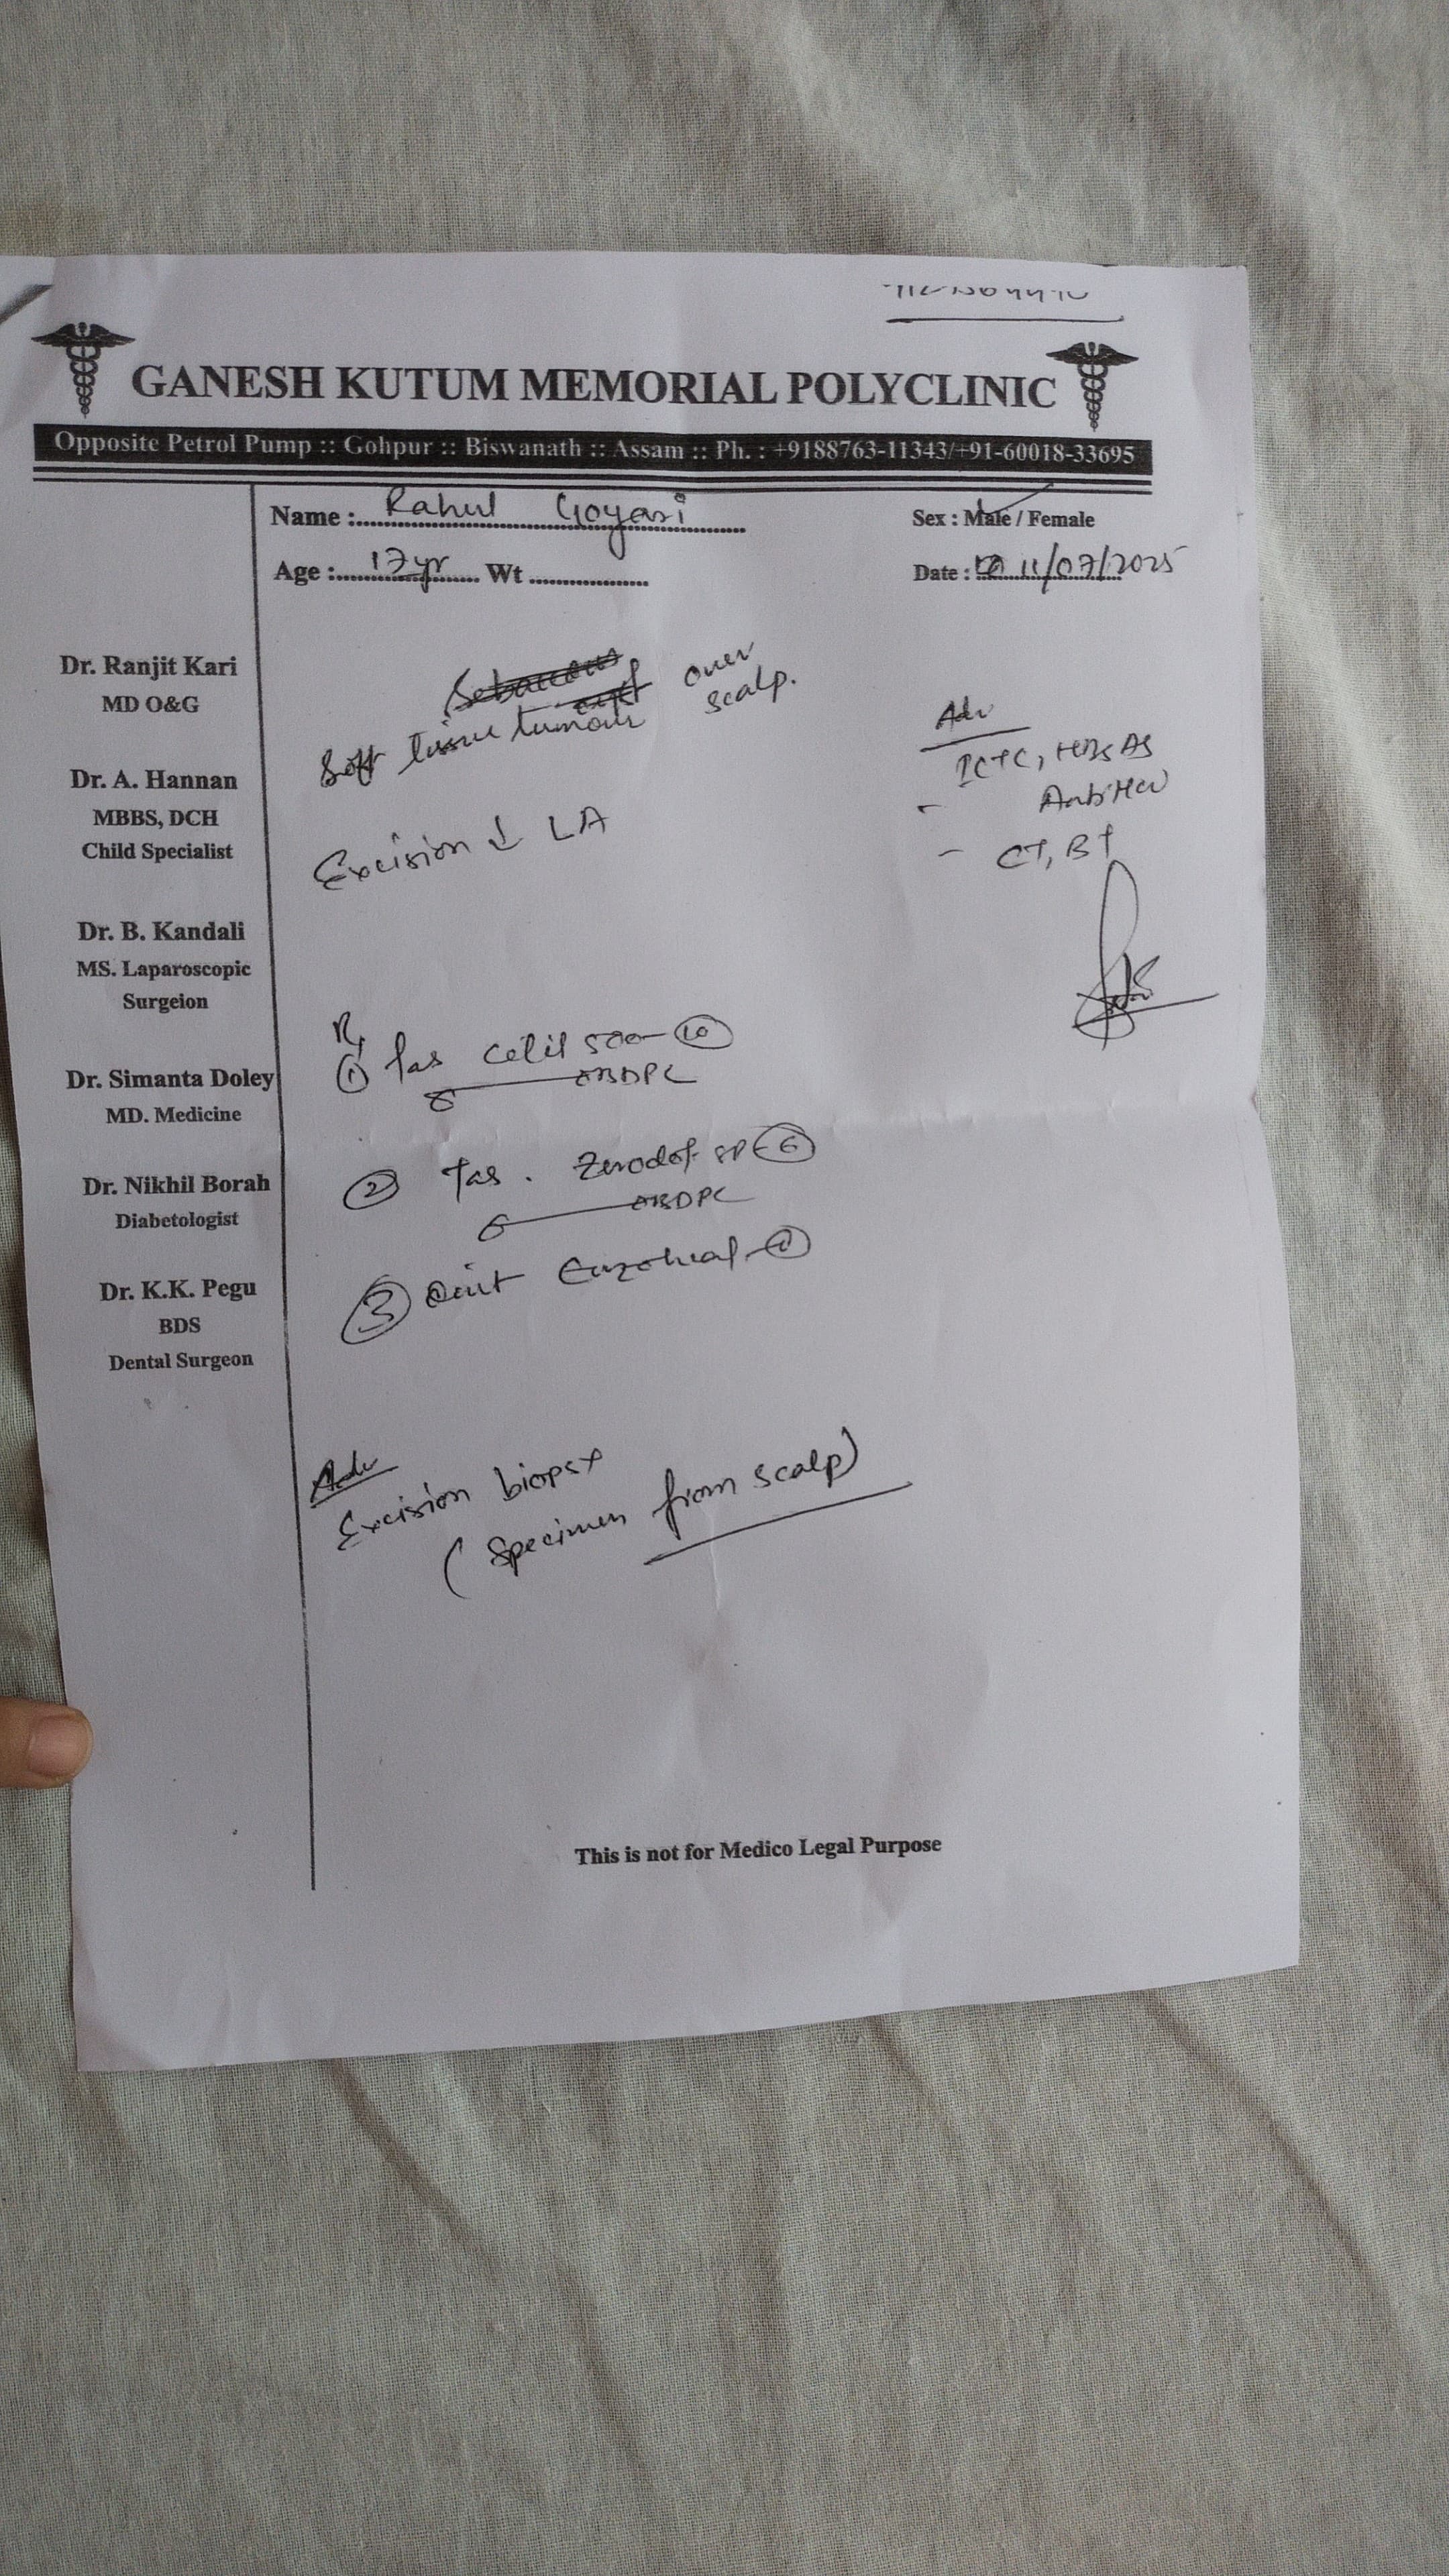 GANESH KUTUM MEMORIAL POLYCLINIC
Opposite Petrol Pump :: Gohpur :: Biswanath :: Assam :: Ph. : +9188763-11343/+91-60018-33695
Name : Rahul Goyari
Sex : Male / Female
Age : 17yr Wt
Date : 11/07/2025
Dr. Ranjit Kari
MD O&G
Dr. A. Hannan
MBBS, DCH
Child Specialist
Dr. B. Kandali
MS. Laparoscopic
Surgeion
Dr. Simanta Doley
MD. Medicine
Dr. Nikhil Borah
Diabetologist
Dr. K.K. Pegu
BDS
Dental Surgeon
Sebaceous
cyst over
Soft tissue tumour scalp.
Excision LA
Adv
ICTC, HBsAg
- Anti HCV
- CT, BT
Rx
① Tab 500 10
ABDPC
② Tab. Zerodol SP 6
ABDPC
③ Oint Enzoheal ①
Adv
Excision biopsy
(Specimen from scalp)
This is not for Medico Legal Purpose